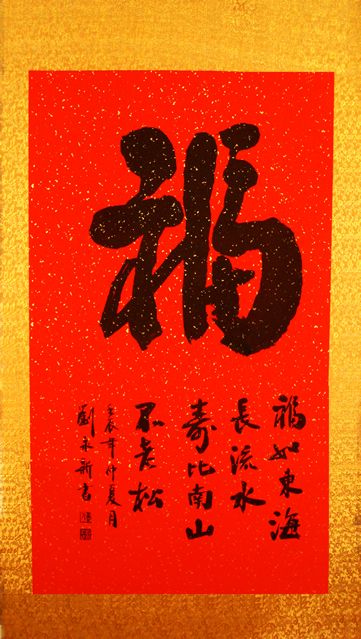 福
福如東海
長流水
壽比南山
不老松
壬辰年仲夏月
劉永新書